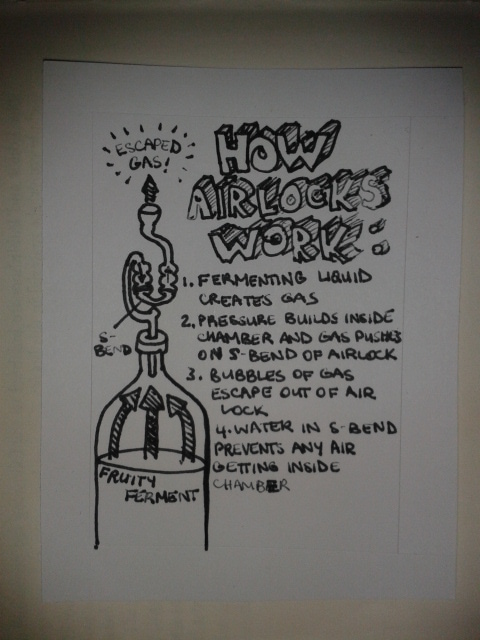 ESCAPED
GAS!
HOW
AIRLOCKS
WORK:
1. FERMENTING LIQUID
CREATES GAS
2. PRESSURE BUILDS INSIDE
CHAMBER AND GAS PUSHES
ON S-BEND OF AIRLOCK
3. BUBBLES OF GAS
ESCAPE OUT OF AIR
LOCK
4. WATER IN S-BEND
PREVENTS ANY AIR
GETTING INSIDE
CHAMBER
S-
BEND
FRUITY
FERMENT